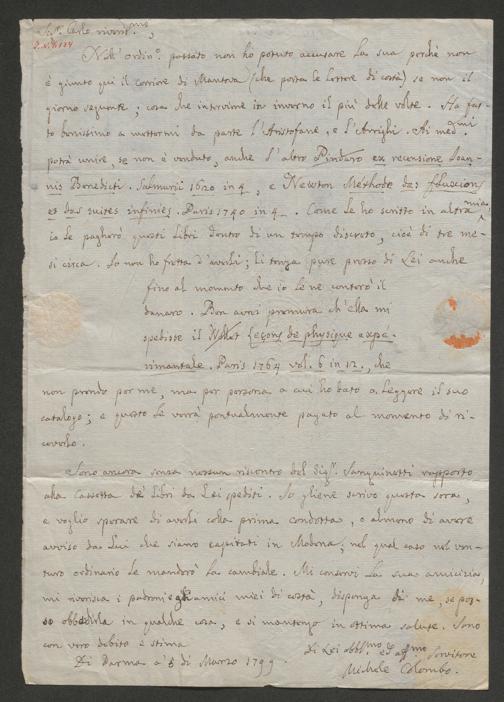 Sig.r Carlo riverit.mo,
Nell' ordin.o passato non ho potuto accusare la sua perchè non
è giunto qui il corriere di Mantova (che porta le lettere di costà) se non il
giorno seguente; cosa che interviene in inverno il più delle volte. Ha fat-
to benissimo a mettermi da parte l'Aristofane, e l'Arrighi. Ai med.mi
potrà unire, se non è venduto, anche l'altro Pindaro ex recensione Joan-
nis Benedicti. Salmurii 1620 in 4, e Newton Méthode des fluxions
et des suites infinies. Paris 1740 in 4. Come le ho scritto in altra mia,
io le pagherò questi libri dentro di un tempo discreto, cioè di tre me-
si circa. Io non ho fretta d'averli; li tenga pure presso di Lei anche
fino al momento che io le ne conterò il
danaro. Ben avrei premura ch'ella mi
spedisse il Nollet Leçons de physique expé-
rimentale. Paris 1764 vol. 6 in 12, che
non prendo per me, ma per persona a cui ho dato a leggere il suo
catalogo; e questo le verrà pontualmente pagato al momento di ri-
ceverlo.
Sono ancora senza nessun riscontro del Sig.r Sanguinetti rapporto
alla Cassetta de' libri da Lei spediti. Io gliene scrivo questa sera,
e voglio sperare di averli colla prima condotta, o almeno di avere
avviso da Lui che siano capitati in Modena; nel qual caso nel ven-
turo ordinario le manderò la cambiale. Mi conservi la sua amicizia,
mi riverisca i padroni e gli amici miei di costà, disponga di me, se pos-
so obbedirla in qualche cosa, e si mantenga in ottima salute. Sono
con vero debito e stima
Di Parma a' 5 di Marzo 1799.
di Lei obbl.mo ed aff.mo Servitore
Michele Colombo.